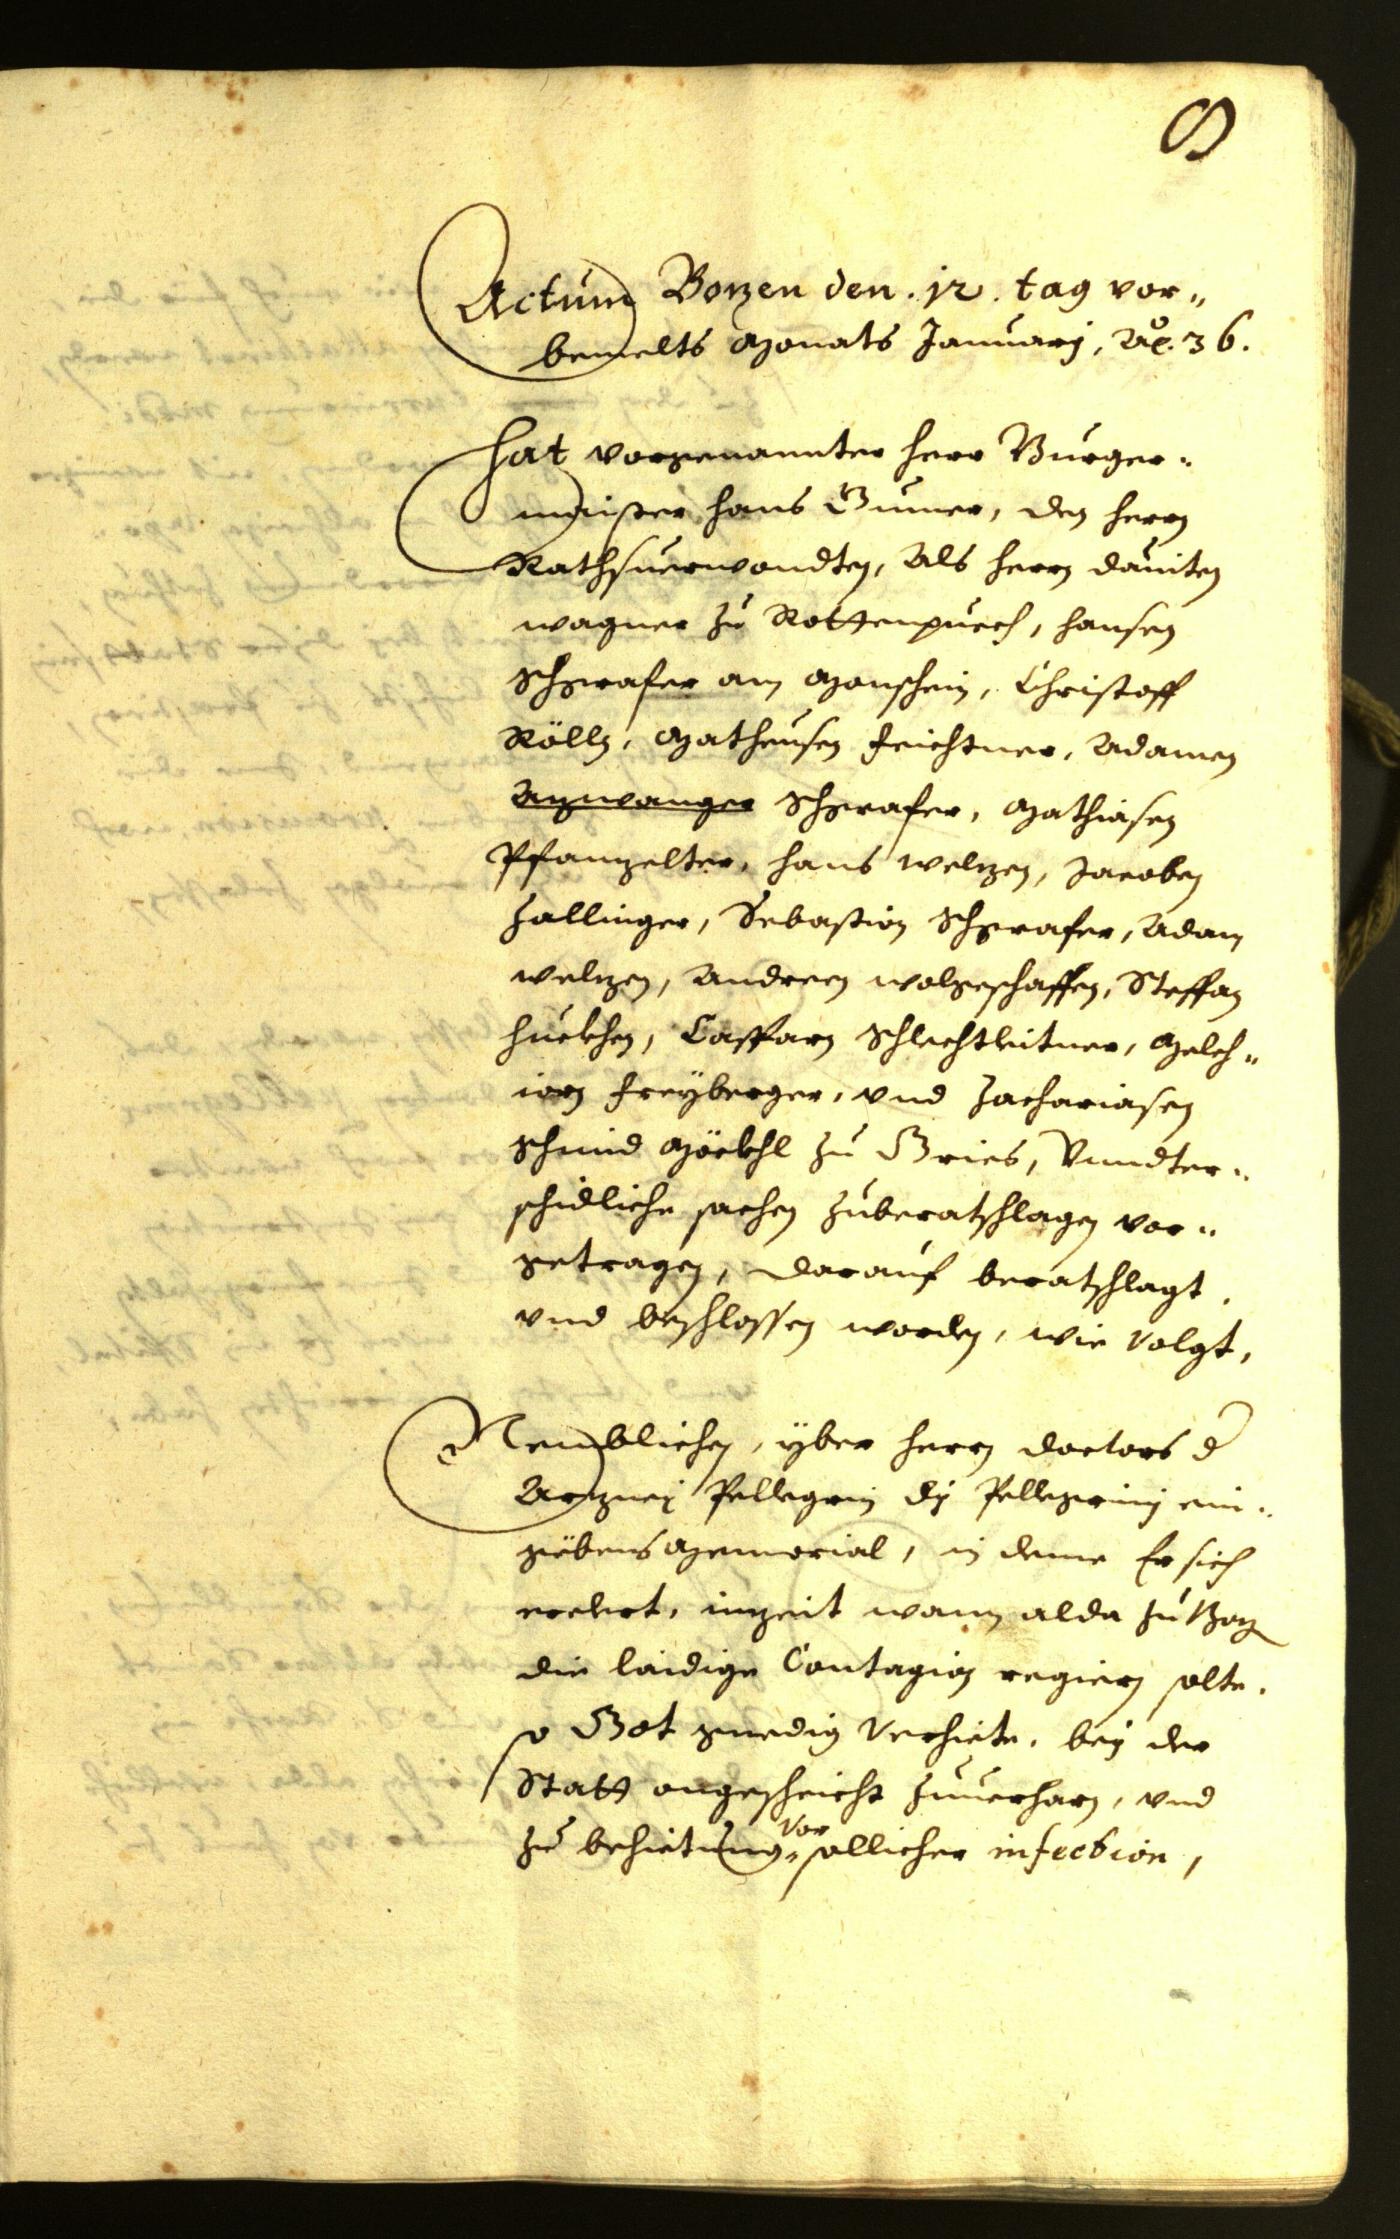 8
Actum Bozen den .12. tag vor„
bemelts Monats Januarij, Ao. 36.
Hat vorgenannter Herr Burger„
maister Hans Gumer, den Herrn
Rathsuerwondten, Als Herrn Dauiten
Wagner zu Rottenpuech, Hansen
Schgrafer am Monschein, Christoff
Rölln, Matheusen Feichtner, Adamen
Schgrafer, Mathiasen
Pfanzelter, Hans Welzen, Jacoben
Zallinger, Sebastion Schgrafer, Adam
Welzen, Andreen Wolgeschaffen, Steffan
Huebhen, Casparn Schlechtleitner, Melch„
iorn Freyberger, vnd Zachariasen
Schmid Möckhl zu Gries, Vnndter„
schidliche sachen zuberatschlagen vor„
getragen, Darauf beratschlagt,
vnd beschlossen worden, wie Volgt,
Nemblichen, yber Herrn Doctors d
Arzney Pellegrin dj Pellegrinj ein„
gebens Memorial, in deme Er sich
erclert, inzeit wann alda zu Bozn
die laidige Contagion regiern solte,
so Got gnedig Verhiete, bey der
Statt ongescheicht zuuerharn, vnd
zu behietung„ vor sollicher infection,